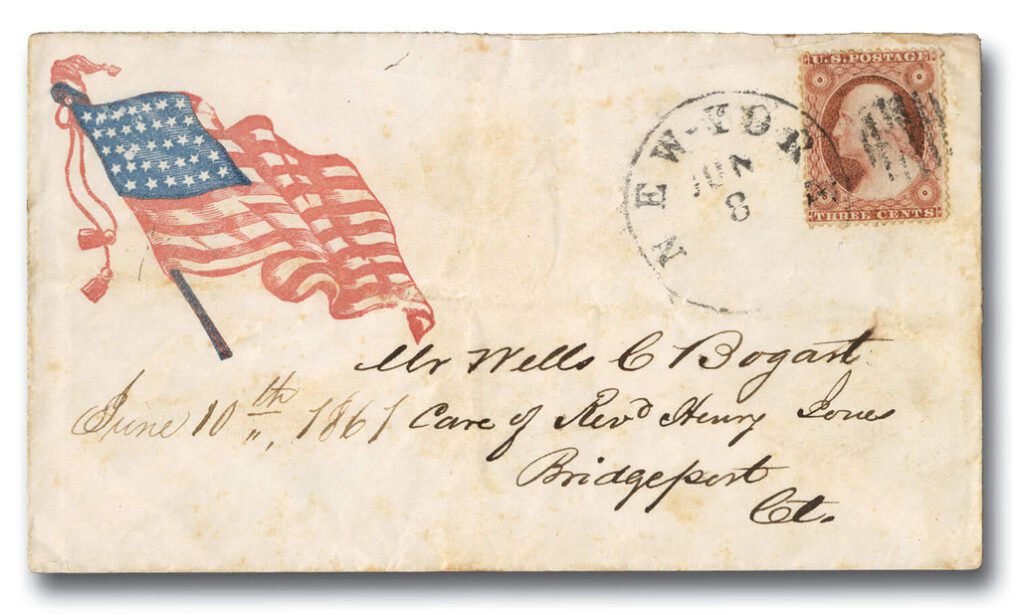 U.S. POSTAGE
THREE CENTS
NEW-YORK
JUN
8
Mr Wells C Bogart
June 10th, 1861
Care of Revd Henry Jones
Bridgeport
Ct.